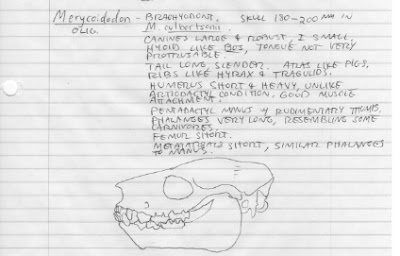 Merycoidodon - BRACHYODONT. SKULL 180-200 MM IN
OLIG. M. culbertsoni.
CANINES LARGE & ROBUST. I SMALL.
HYOID LIKE BOS, TONGUE NOT VERY
PROTRUSABLE.
TAIL LONG, SLENDER. ATLAS LIKE PIGS,
RIBS LIKE HYRAX & TRAGULIDS.
HUMERUS SHORT & HEAVY, UNLIKE
ARTIODACTYL CONDITION. GOOD MUSCLE
ATTACHMENT.
PENTADACTYL MANUS W RUDIMENTARY THUMB.
PHALANGES VERY LONG, RESEMBLING SOME
CARNIVORES.
FEMUR SHORT.
METATARSALS SHORT, SIMILAR PHALANGES
TO MANUS.